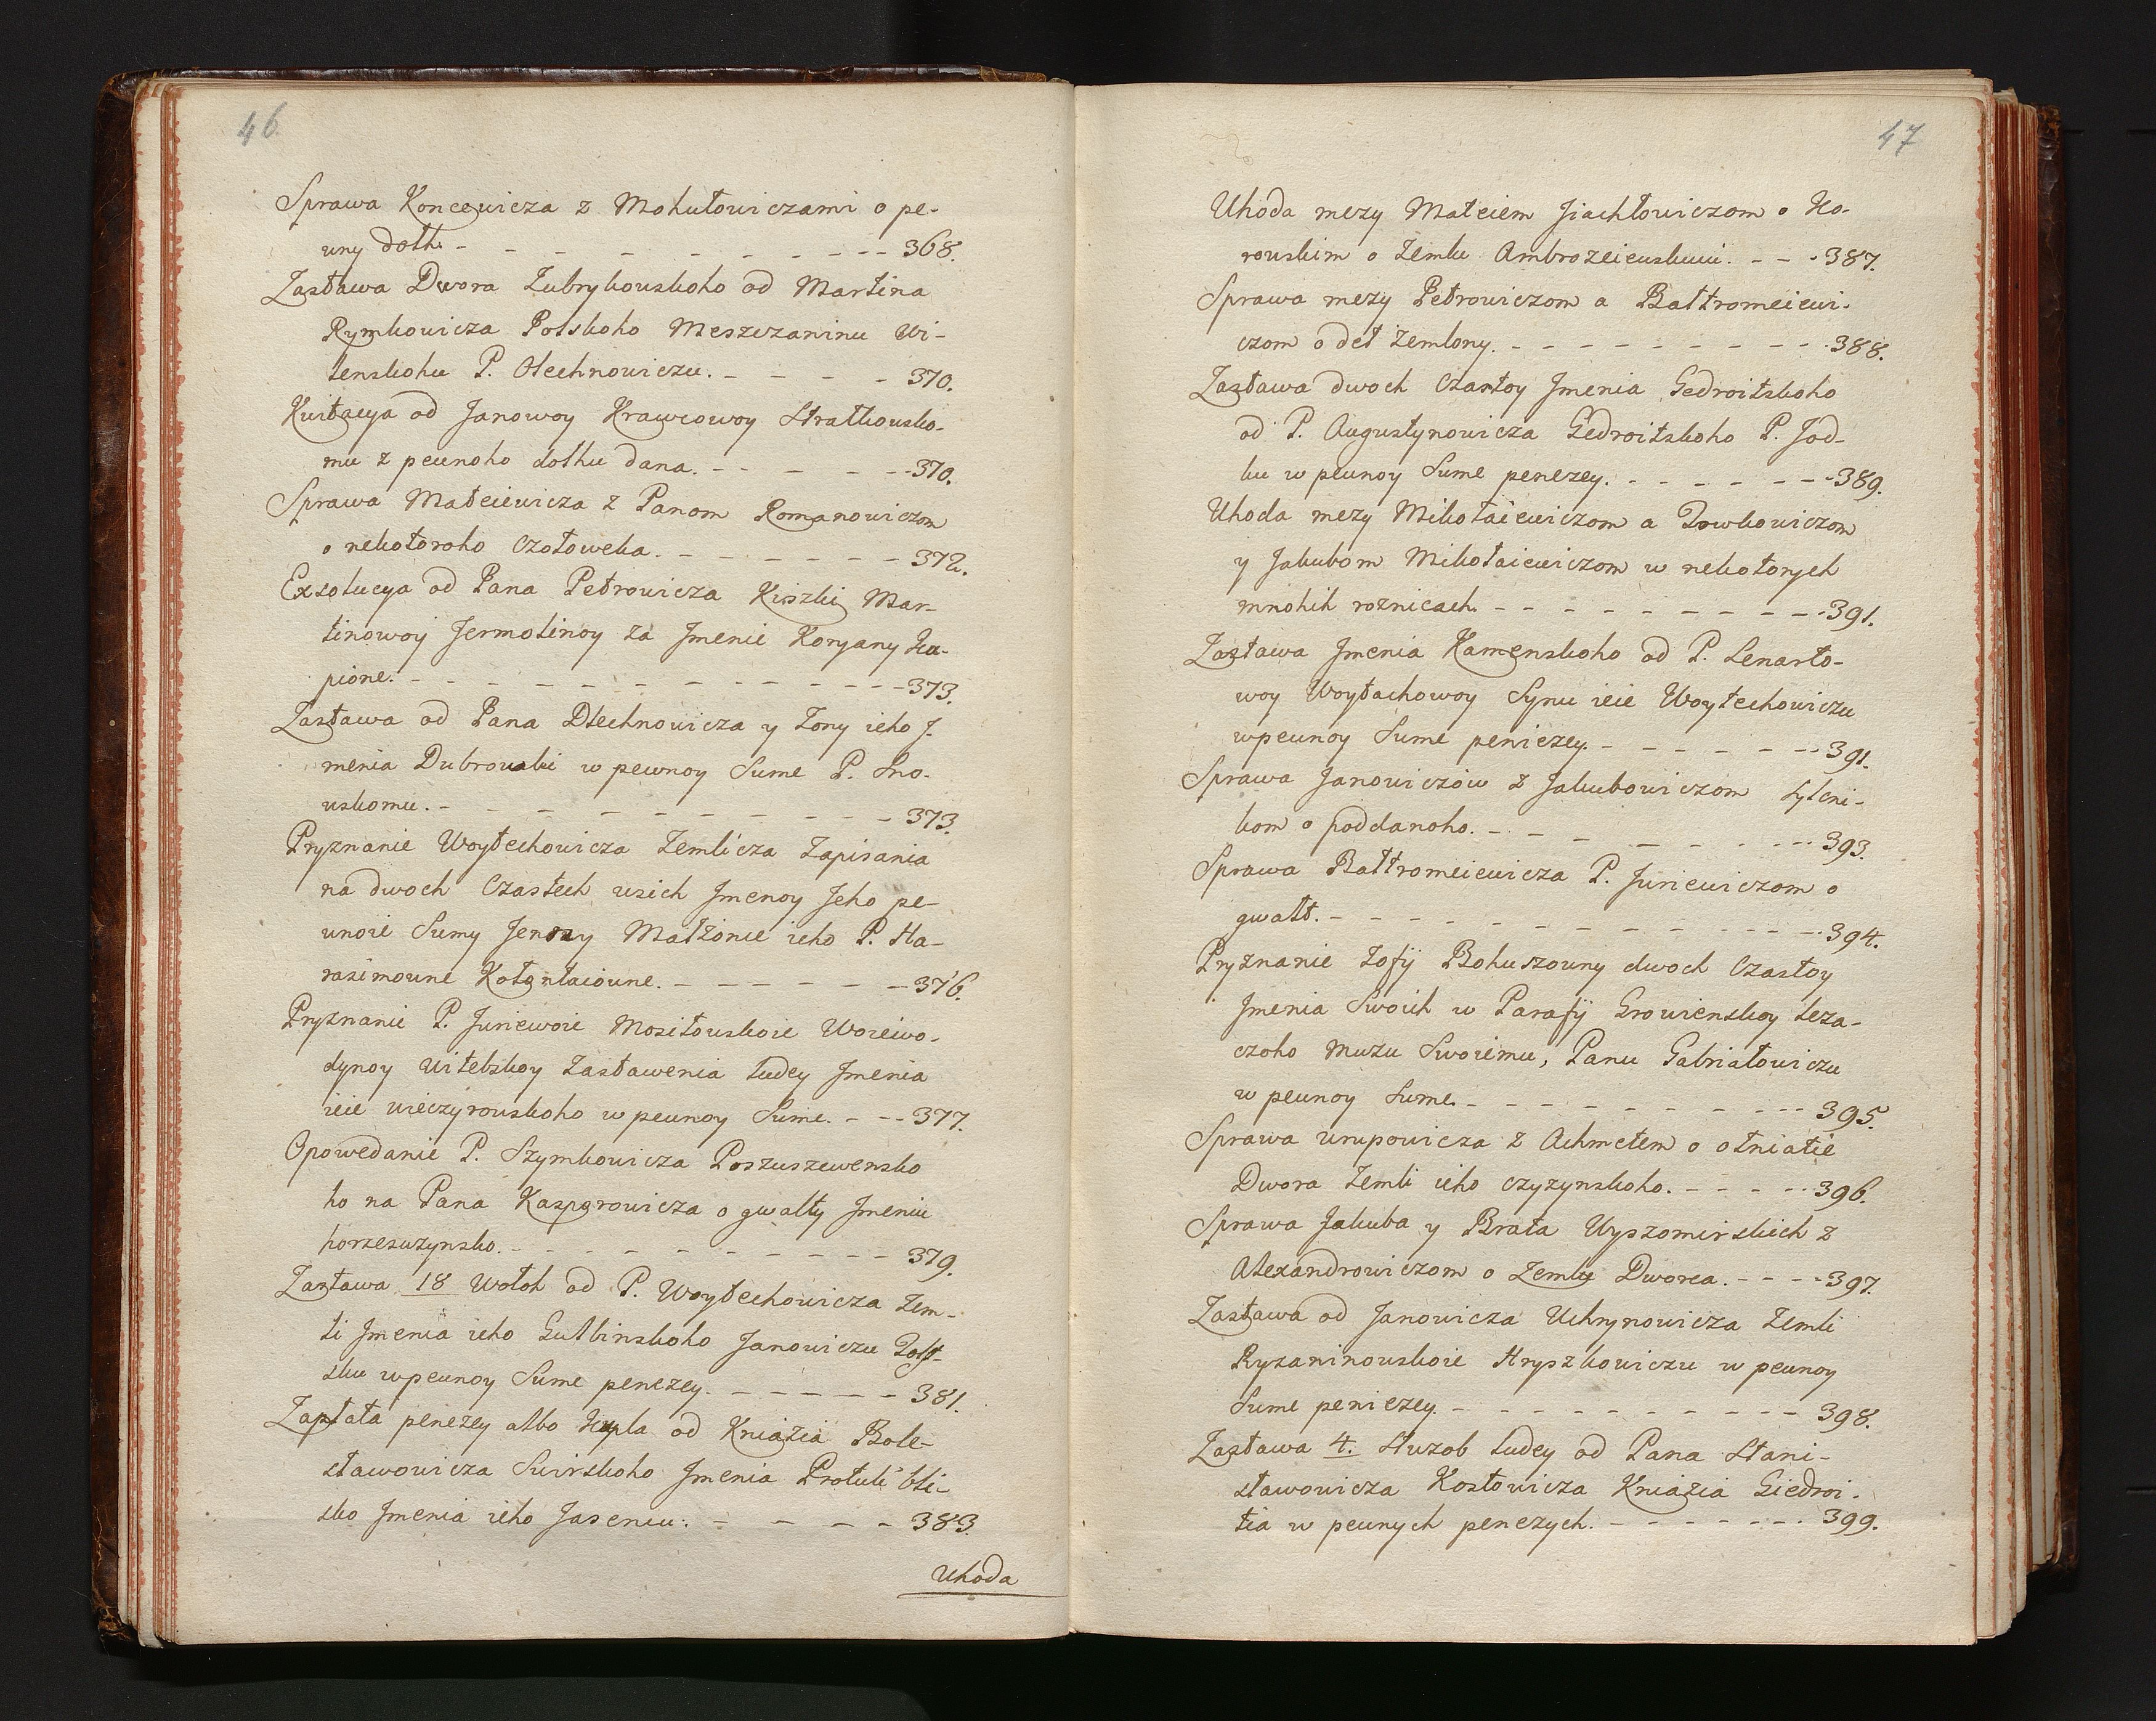 46
Sprawa Koncewicza z Mokułowiczami o pe-
wny dołh. - - - - - - - - - - 368.
Zastawa Dwora Zubrykowskoho od Martina
Rymkowicza Polskoho Meszczaninu Wi-
lenskoku P. Olechnowiczu. - - - - - 370.
Kwitacya od Janowoy Krawcowoy Strałkowsko-
mu z pewnoho dołhu dana. - - - - - - 370.
Sprawa Małciewicza z Panom Romanowiczom
o nekotoroho Czołoweka. - - - - - - - 372.
Exsolucya od Pana Petrowicza Kiszki Mar-
tinowoj Jermolinoy za Jmenie Koryany Ku-
pione. - - - - - - - - - - - - - 373.
Zastawa od Pana Olechnowicza y Zony ieho J-
menia Dubrowki w pewnoy Sume P. Sno-
wskomu. - - - - - - - - - - - 373.
Pryznanie Woytechowicza Zemlicza Zapisania
na dwoch Czastech wsich Jmenoy Jeho pe-
wnoie Sumy Jenozy Małżonie ieho P. Ha-
rasimowne Kotontaiowne. - - - - - - - 376.
Pryznanie P. Juriewoie Mositowskoie Woreiwo-
dynoy Witebskoy Zastawenia ludey Jmenia
ieie wieczyrowskoho w pewnoy Sume. - - - 377.
Opowedanie P. Szymkowicza Poszuszewensko
ho na Pana Kasparowicza o gwałty Jmeniu
horzeswzynsko. - - - - - - - - - - - 379.
Zastawa 18 Wołok od P. Woytechowicza Zem-
li Jmenia ieho Gulbinskoho Janowiczu
sku w pewnoy Sume penezey. - - - - - - 381.
Zapłata penezey albo Kupla od Kniazia Bole-
sławowicza Swirskoho Jmenia Protuli bli-
sko Jmenia ieho Jaseniu. - - - - - 383.
Uhoda
47
Uhoda mezy Matciem Jiachłowiczom o Ko-
rowskim o Zemlu Ambrozeiewskuiu. - - - 387.
Sprawa mezy Petrowiczom a Bałtromeiewi-
czom o deł Zemlony. - - - - - - - - - 388.
Zastawa dwoch Czastoy Jmenia Gedroitskoho
od P. Augustynowicza Gedroitskoho P. Jod-
ku w pewnoy Sume penezey. - - - - - - - 389.
Uhoda mezy Mikołaiewiczom a Dowkowiczom
y Jakubom Mikołaiewiczom w nekotorych
mnohih roznicach. - - - - - - - - - - 391.
Zastawa Jmenia Kamenskoho od P. Lenarto-
woy Woytachowoy Synu ieie Woytechowiczu
w pewnoy Sume peniezey. - - - - - - - 391.
Sprawa Janowiczów z Jakubowiczom Lyleni-
kom o poddanoho. - - - - - - - - - 393.
Sprawa Bałtromeiewicza P. Juriewiczom o
gwałt. - - - - - - - - - - - - - 394.
Pryznanie Zofij Bohuszowny dwoch Czastoy
Jmenia Swoich w Parafij Growienskoy leza-
czoho Muzu Swoiemu, Panu Gabriałowiczu
w pewnoy Sume. - - - - - - - - - - 395.
Sprawa Urupowicza z Achmetem o otniatie
Dwora Zemli ieho Czyzynskoho. - - - - - 396.
Sprawa Jakuba y Brata Wyszomirskich z
Alexandrowiczom o Zemlu Dworca. - - - - 397.
Zastawa od Janowicza Uchrynowicza Zemli
Ryzaninowskoie Hryszkowiczu w pewnoy
Sume peniezey. - - - - - - - - - - 398.
Zastawa 4. Słuzob ludey od Pana Stani-
sławowicza Kostowicza Kniazia Giedroi-
tia w pewnych penezych. - - - - - - - 399.